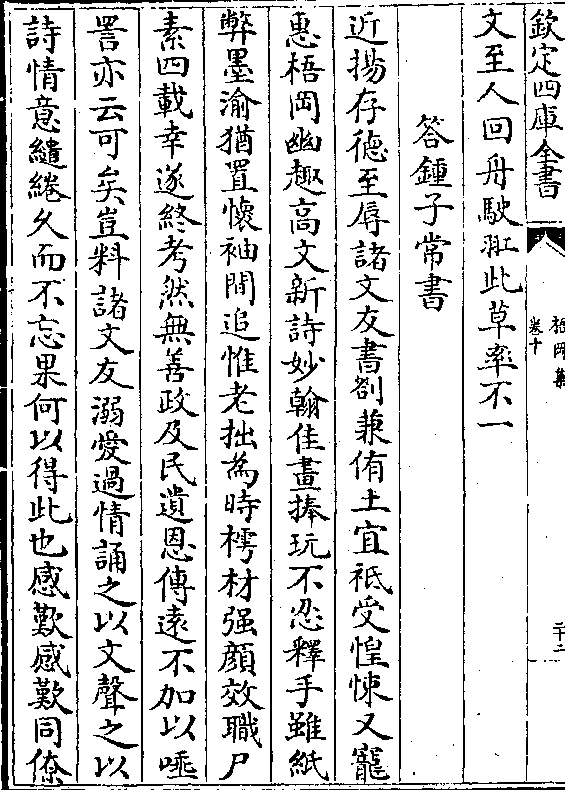 欽定四庫全書
卷十
梧岡集
二十二
文至人回舟駛㳂此草率不一
答鍾子常書
近揚存德至辱諸文友書劄兼侑土宜祗受惶悚又寵
惠梧岡幽趣高文新詩妙翰佳畫捧玩不忍釋手雖紙
弊墨渝猶置懷袖間追惟老拙為時樗材强顔效職尸
素四載幸遂終考然無善政及民遺恩傳遠不加以唾
詈亦云可矣豈料諸文友溺愛過情誦之以文聲之以
詩情意繾綣久而不忘果何以得此也感歎感歎同僚